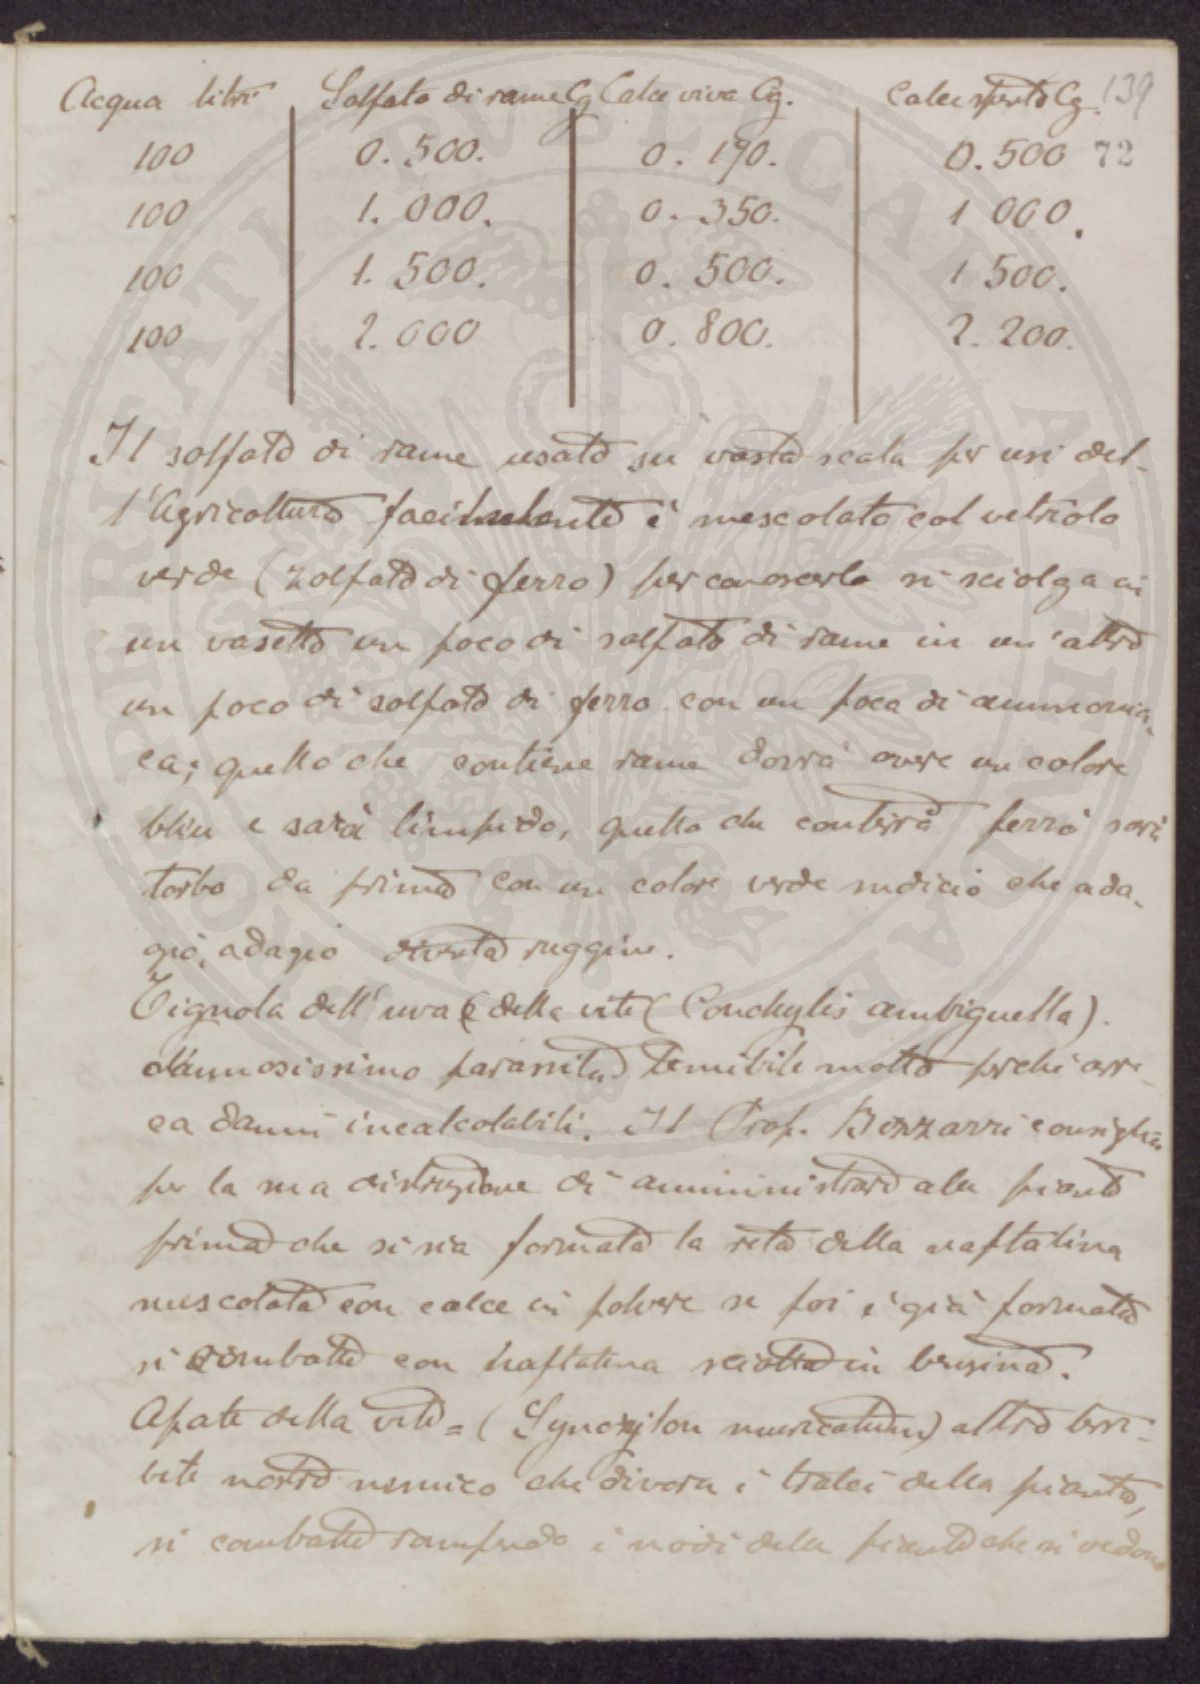 Acqua litri Solfato di rame Cg Calce viva Cg. Calce spenta Cg. 139
100 0.500. 0. 190. 0.500 72
100 1.000. 0. 350. 1 000.
100 1. 500. 0. 500. 1 500.
100 2.000 0. 800. 2. 200.
Il solfato di rame usato su vasta scala per usi del-
l'Agricoltura facilmente è mescolato col vetriolo
verde (zolfato di ferro) per conoscerlo si sciolga in
un vasetto un poco di solfato di rame in un'altro
un poco di solfato di ferro con un poca di ammonia-
ca; quello che contiene rame dovrà avere un colore
bleu e sarà limpido, quello che conterrà ferro sarà
torbo da prima con un colore verde sudicio che ada-
gio, adagio diventa ruggine.
Tignola dell'uva e della vite (Conchylis ambiguella).
dannosissimo parassita temibile molto perchè arre-
ca danni incalcolabili. Il Prof. Bizzarri consiglia
per la sua distruzione di amministrare alle piante
prima che si sia formata la reta della naftalina
mescolata con calce in polvere se poi è già formata
si combatte con naftalina sciolta in benzina.
Apate della vite = (Synoxylon muricatum) altro terri-
bile nostro nemico che divora i tralci della pianta,
si combatte rompendo i nodi delle piante che si vedono
PROSPERITATI PVBLICAE AVGENDAE